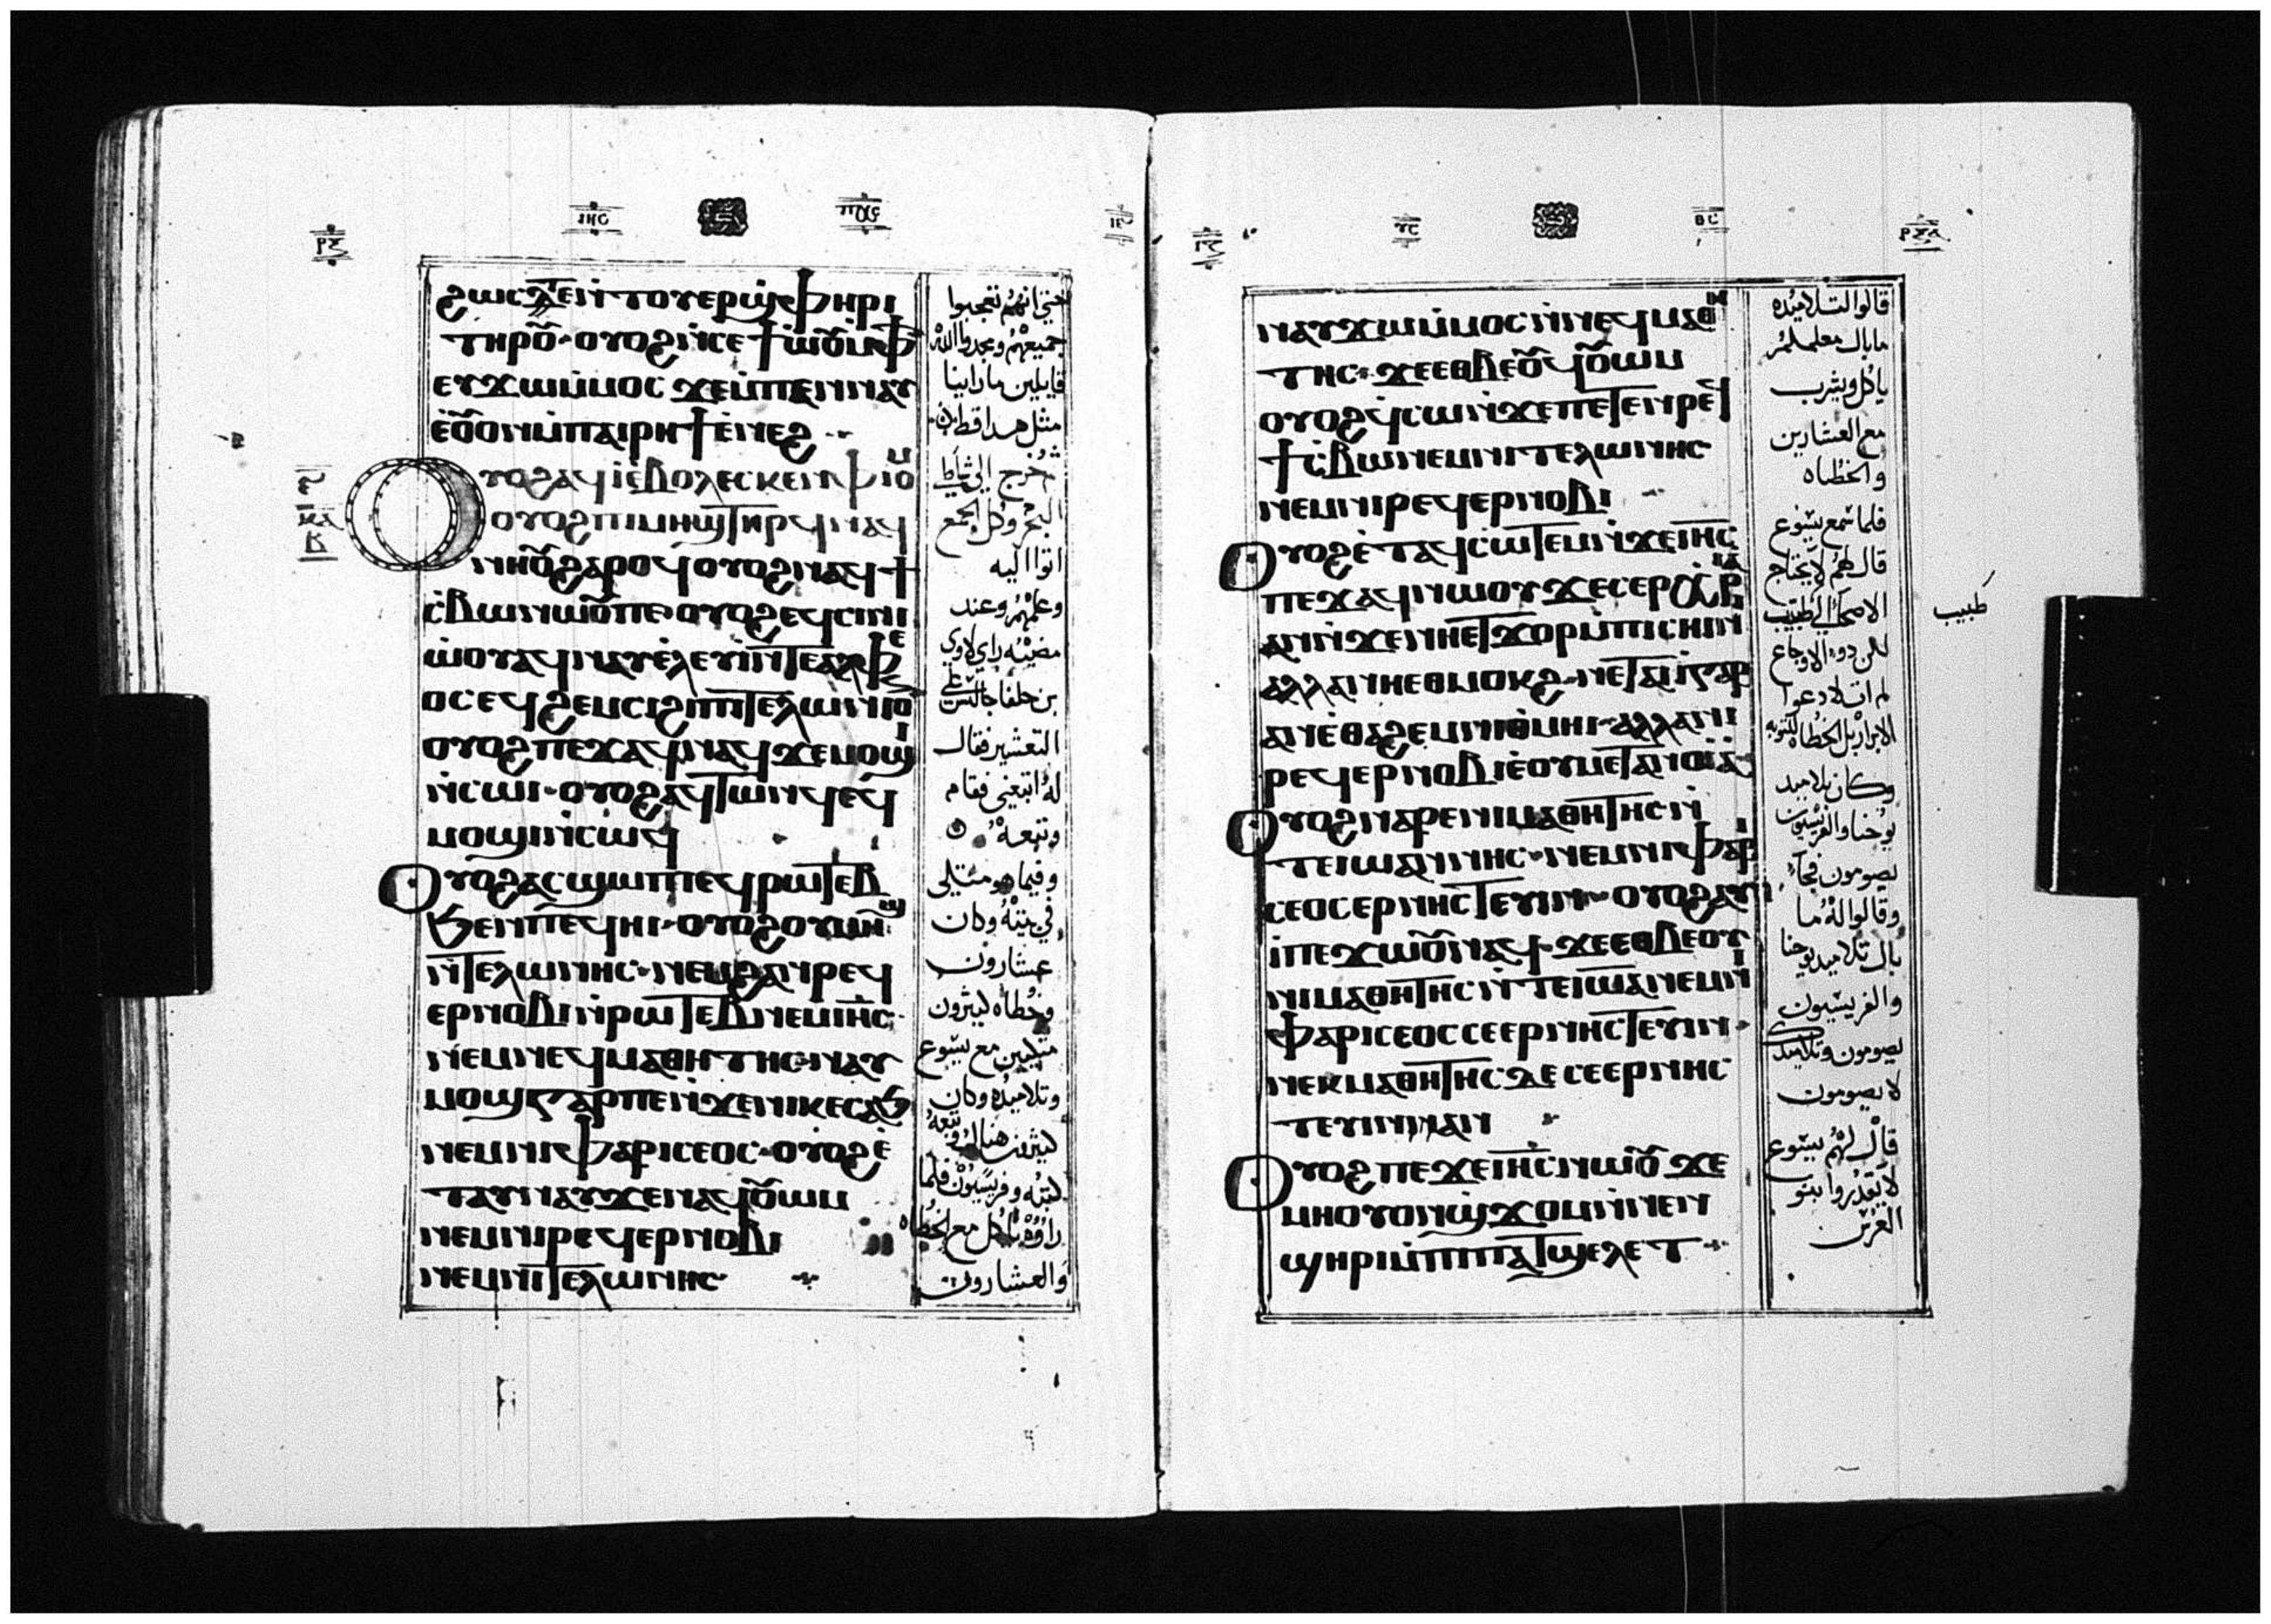 ⲓⲏⲥ ⲡⲭⲥ
ϩⲱⲥⲇⲉⲛ̀ⲧⲟⲩⲉⲣϣ̀ⲫⲏⲣⲓ
ⲧⲏⲣⲟⲩ · ⲟⲩⲟϩⲛ̀ⲥⲉϯⲱ̀ⲟⲩⲙ̀ⲫϯ
ⲉⲩϫⲱⲙ̀ⲙⲟⲥ ϫⲉⲙ̀ⲡⲉⲛⲛⲁⲩ
ⲉ̀ⲟⲩⲟⲛⲙ̀ⲡⲁⲓⲣⲏϯⲉ̀ⲛⲉϩ
ⲟⲩⲟϩⲁϥⲓ̀ⲉ̀ⲃⲟⲗⲉⲥⲕⲉⲛⲫⲓⲟⲙ
ⲟⲩⲟϩⲡⲓⲙⲏϣⲧⲏⲣϥⲛⲁϥ
ⲛⲏⲟⲩϩⲁⲣⲟϥⲟⲩⲟϩⲛⲁϥϯ
ⲥ̀ⲃⲱⲛⲱⲟⲩⲡⲉ · ⲟⲩⲟϩⲉϥⲥⲓⲛⲓ
ⲱ̀ⲟⲩⲁϥⲛⲁⲩⲉ̀ⲗⲉⲩⲓ̀ⲛ̀ⲧⲉⲁⲗⲫⲉ
ⲟⲥⲉϥϩⲉⲙⲥⲓϩⲓⲡⲓⲧⲉⲗⲱⲛⲓⲟⲛ
ⲟⲩⲟϩⲡⲉϫⲁϥⲛⲁϥϫⲉⲙⲟϣⲓ
ⲛ̀ⲥⲱⲓ · ⲟⲩⲟϩⲁϥⲧⲱⲛϥⲉ̀ϥ
ⲙⲟϣⲓⲛ̀ⲥⲱϥ
ⲟⲩⲟϩⲁⲥϣⲱⲡⲓⲉϥⲣⲱⲧⲉⲃ
ϧⲉⲛⲡⲉϥⲏⲓ · ⲟⲩⲟϩⲟⲩⲙⲏϣ
ⲛ̀ⲧⲉⲗⲱⲛⲏⲥ · ⲛⲉⲙϩⲁⲛⲣⲉϥ
ⲉⲣⲛⲟⲃⲓⲛⲣⲱⲧⲉⲃⲛⲉⲙⲓⲏⲥ
ⲛⲉⲙⲛⲉϥⲙⲁⲑⲏⲧⲏⲥ · ⲛⲁⲩ
ⲙⲟϣⲅⲁⲣⲡⲉⲛ̀ϫⲉⲛⲓⲕⲉⲥⲁϧ
ⲛⲉⲙⲛⲓⲫⲁⲣⲓⲥⲉⲟⲥ · ⲟⲩⲟϩⲉ̀
ⲧⲁⲩⲛⲁⲩϫⲉⲛⲁϥⲟⲩⲱⲙ
ⲛⲉⲙⲛⲓⲣⲉϥⲉⲣⲛⲟⲃⲓ
ⲛⲉⲙⲛⲓⲧⲉⲗⲱⲛⲏⲥ
حتي انهم تعجبوا
جميعهم ومجدوا الله
قايلين ما راينا
مثل هدا قط
ثم خرج الي شاطي
البحر وكل الجمع
اتوا اليه
وعلمهم وعند
مضيه راي لاوي
بن حلفا جالس علي
التعشير فقال
له اتبعني فقام
وتبعه
وفيما هو متكي
في بيته وكان
عشارون
وخطاه كثيرون
متكيين مع يسوع
وتلاميده وكان
كثيرون هناك وتبعه
كتبه وفريسيون فلما
راوه ياكل مع الخطاه
والعشارون
ⲛⲁⲩϫⲱⲙ̀ⲙⲟⲥⲛ̀ⲛⲉϥⲙⲁⲑⲏ
ⲧⲏⲥ · ϫⲉⲉⲑⲃⲉⲟⲩϥⲟⲩⲱⲙ
ⲟⲩⲟϩϥⲥⲱⲛ̀ϫⲉⲡⲉⲧⲉⲛⲣⲉϥ
ϯⲥ̀ⲃⲱⲛⲉⲙⲛⲓⲧⲉⲗⲱⲛⲏⲥ
ⲛⲉⲙⲛⲓⲣⲉϥⲉⲣⲛⲟⲃⲓ
ⲟⲩⲟϩⲉ̀ⲧⲁϥⲥⲱⲧⲉⲙⲛ̀ϫⲉⲓⲏⲥ
ⲡⲉϫⲁϥⲛⲱⲟⲩϫⲉⲥⲉⲣⲭⲣⲓⲁ
ⲁⲛⲛ̀ϫⲉⲛⲏⲉⲧϫⲟⲣⲙ̀ⲡⲓⲥⲏⲓⲛⲓ
ⲁⲗⲗⲁⲛⲏⲉⲑⲙⲟⲕϩ · ⲛⲉⲧⲁⲓⲓ̀ⲅⲁⲣ
ⲁⲛⲉ̀ⲑⲁϩⲉⲙⲛⲓⲑⲙⲏⲓ · ⲁⲗⲗⲁⲛⲓ
ⲣⲉϥⲉⲣⲛⲟⲃⲓⲉ̀ⲟⲩⲙⲉⲧⲁⲛⲟⲓⲁ
ⲟⲩⲟϩⲛⲁⲣⲉⲛⲓⲙⲁⲑⲏⲧⲏⲥⲛ̀
ⲧⲉⲓⲱⲁⲛⲛⲏⲥ · ⲛⲉⲙⲛⲓⲫⲁⲣⲓ
ⲥⲉⲟⲥⲉⲣⲛⲏⲥⲧⲉⲩⲓⲛ · ⲟⲩⲟϩⲁⲩⲓ
ⲡⲉϫⲱⲟⲩⲛⲁϥ · ϫⲉⲉⲑⲃⲉⲟⲩ
ⲛⲓⲙⲁⲑⲏⲧⲏⲥⲛ̀ⲧⲉⲓⲱⲁⲛⲉⲙⲛⲓ
ⲫⲁⲣⲓⲥⲉⲟⲥⲥⲉⲉⲣⲛⲏⲥⲧⲉⲩⲓⲛ
ⲛⲉⲕⲙⲁⲑⲏⲧⲏⲥⲇⲉⲥⲉⲉⲣⲛⲏⲥ
ⲧⲉⲩⲓⲛⲁⲛ
ⲟⲩⲟϩⲡⲉϫⲉⲓⲏⲥⲛⲱⲟⲩ ϫⲉ
ⲙⲏⲟⲩⲟⲛϣ̀ϫⲟⲙⲛ̀ⲛⲉⲛ
ϣⲏⲣⲓⲙ̀ⲡⲓⲡⲁⲧϣⲉⲗⲉⲧ
قالوا لتلاميده
ما بال معلمكم
ياكل ويشرب
مع العشارين
والخطاه
فلما سمع يسوع
قال لهم لا يحتاج
الاصحا الي طبيب
لكن دوو الاوجاع
لم ات لادعوا
الابرار بل الخطاه للتوبه
وكان تلاميد
يوحنا والفريسيون
يصومون فجاء
وقالوا له ما
بال تلاميد يوحنا
والفريسيون
يصومون وتلاميدك
لا يصومون
قال لهم يسوع
لا يقدروا بنو
العرس
طبيب